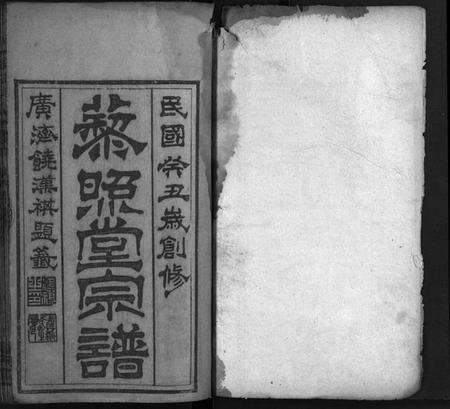 民國癸丑歲創修
藜照堂宗譜
廣濟饒漢祺題籤